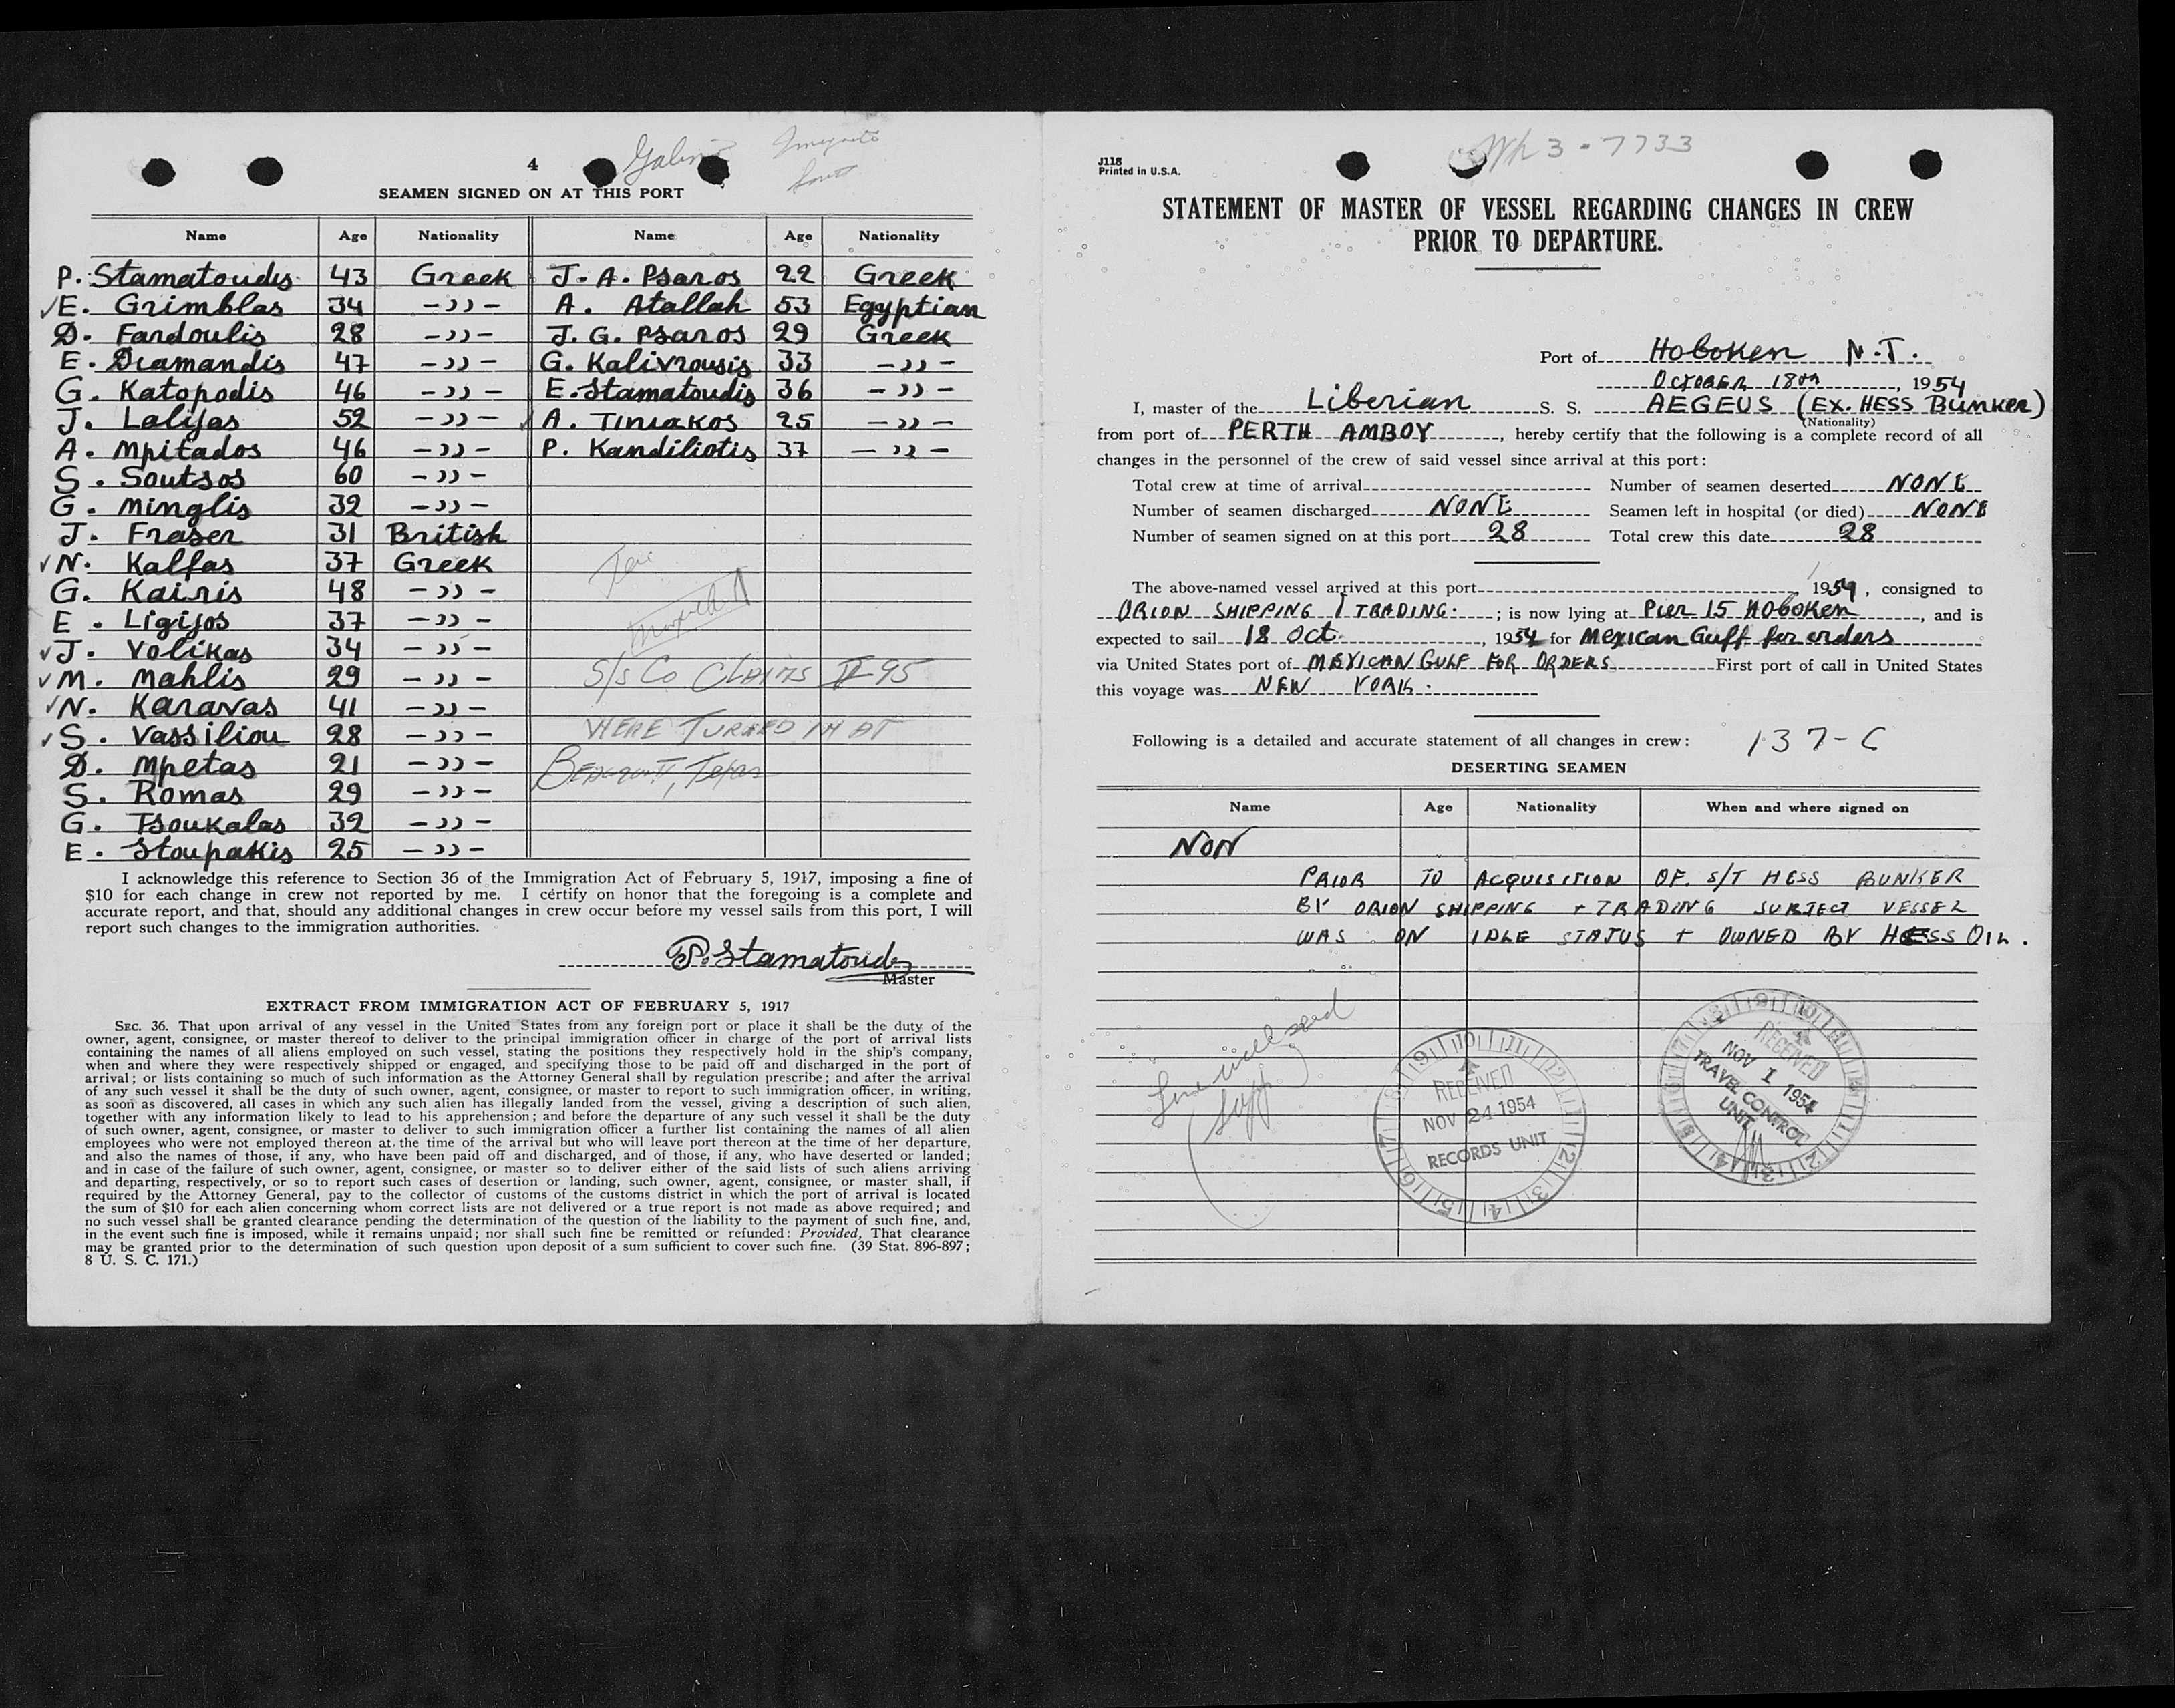 4
SEAMEN SIGNED ON AT THIS PORT
Name Age Nationality Name Age Nationality
P. Stamatoudis 43 Greek J. A. Psaros 22 Greek
✓E. Grimblas 34 -»- A. Atallah 53 Egyptian
D. Fardoulis 28 -»- J. G. Psaros 29 Greek
E. Diamandis 47 -»- G. Kalivrousis 33 -»-
G. Katopodis 46 -»- E. Stamatoudis 36 -»-
J. Lalijas 52 -»- ✓A. Tiniakos 25 -»-
A. Mpitados 46 -»- P. Kandiliotis 37 -»-
S. Soutsos 60 -»-
G. Minglis 32 -»-
J. Fraser 31 British
✓N. Kalfas 37 Greek
G. Kairis 48 -»-
E. Ligijos 37 -»-
✓J. Volikas 34 -»-
✓M. Mahlis 29 -»-
✓N. Karavas 41 -»-
✓S. Vassiliou 28 -»-
D. Mpetas 21 -»-
S. Romas 29 -»-
G. Tsoukalas 32 -»-
E. Stoupakis 25 -»-
S/S Co CLAIMS II-95
WERE TURNED IN AT
Beaumont, Texas
I acknowledge this reference to Section 36 of the Immigration Act of February 5, 1917, imposing a fine of
$10 for each change in crew not reported by me. I certify on honor that the foregoing is a complete and
accurate report, and that, should any additional changes in crew occur before my vessel sails from this port, I will
report such changes to the immigration authorities.
P. Stamatoudis
Master
EXTRACT FROM IMMIGRATION ACT OF FEBRUARY 5, 1917
SEC. 36. That upon arrival of any vessel in the United States from any foreign port or place it shall be the duty of the
owner, agent, consignee, or master thereof to deliver to the principal immigration officer in charge of the port of arrival lists
containing the names of all aliens employed on such vessel, stating the positions they respectively hold in the ship's company,
when and where they were respectively shipped or engaged, and specifying those to be paid off and discharged in the port of
arrival; or lists containing so much of such information as the Attorney General shall by regulation prescribe; and after the arrival
of any such vessel it shall be the duty of such owner, agent, consignee, or master to report to such immigration officer, in writing,
as soon as discovered, all cases in which any such alien has illegally landed from the vessel, giving a description of such alien,
together with any information likely to lead to his apprehension; and before the departure of any such vessel it shall be the duty
of such owner, agent, consignee, or master to deliver to such immigration officer a further list containing the names of all alien
employees who were not employed thereon at the time of the arrival but who will leave port thereon at the time of her departure,
and also the names of those, if any, who have been paid off and discharged, and of those, if any, who have deserted or landed;
and in case of the failure of such owner, agent, consignee, or master so to deliver either of the said lists of such aliens arriving
and departing, respectively, or so to report such cases of desertion or landing, such owner, agent, consignee, or master shall, if
required by the Attorney General, pay to the collector of customs of the customs district in which the port of arrival is located
the sum of $10 for each alien concerning whom correct lists are not delivered or a true report is not made as above required; and
no such vessel shall be granted clearance pending the determination of the question of the liability to the payment of such fine, and,
in the event such fine is imposed, while it remains unpaid; nor shall such fine be remitted or refunded: Provided, That clearance
may be granted prior to the determination of such question upon deposit of a sum sufficient to cover such fine. (39 Stat. 896-897;
8 U. S. C. 171.)
3-7733
J118
Printed in U.S.A.
STATEMENT OF MASTER OF VESSEL REGARDING CHANGES IN CREW
PRIOR TO DEPARTURE.
Port of Hoboken N.J.
OCTOBER 18th, 1954
I, master of the Liberian S. S. AEGEUS (EX. HESS Bunker)
(Nationality)
from port of PERTH AMBOY, hereby certify that the following is a complete record of all
changes in the personnel of the crew of said vessel since arrival at this port:
Total crew at time of arrival Number of seamen deserted NONE
Number of seamen discharged NONE Seamen left in hospital (or died) NONE
Number of seamen signed on at this port 28 Total crew this date 28
The above-named vessel arrived at this port 1954, consigned to
ORION SHIPPING & TRADING.; is now lying at Pier 15 Hoboken, and is
expected to sail 18 Oct., 1954 for Mexican Guff for orders
via United States port of MEXICAN GULF FOR ORDERS First port of call in United States
this voyage was NEW YORK.
Following is a detailed and accurate statement of all changes in crew: 137-C
DESERTING SEAMEN
Name Age Nationality When and where signed on
NON
PRIOR TO ACQUISITION OF. S/T HESS BUNKER
BY ORION SHIPPING + TRADING SUBJECT VESSEL
WAS ON IDLE STATUS + OWNED BY HESS OIL.
RECEIVED
NOV 24 1954
RECORDS UNIT
RECEIVED
NOV 1 1954
TRAVEL CONTROL
UNIT